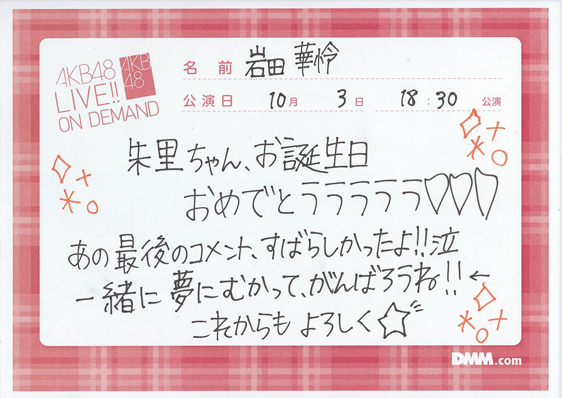 AKB48
LIVE!!
ON DEMAND
AKB
48
名前 岩田 華怜
公演日 10月 3日 18:30 公演
朱里ちゃん、お誕生日
おめでとうううううう♡♡♡
あの最後のコメント、すばらしかったよ!!泣
一緒に夢にむかって、がんばろうね!!←
これからもよろしく☆
DMM.com